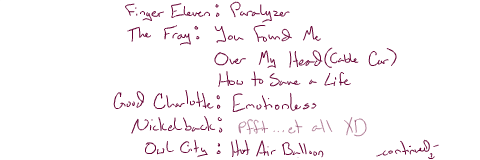 Finger Eleven: Paralyzer
The Fray: You Found Me
Over My Head (Cable Car)
How to Save a Life
Good Charlotte: Emotionless
Nickelback: Pfft...et all XD
Owl City: Hot Air Balloon -continued-